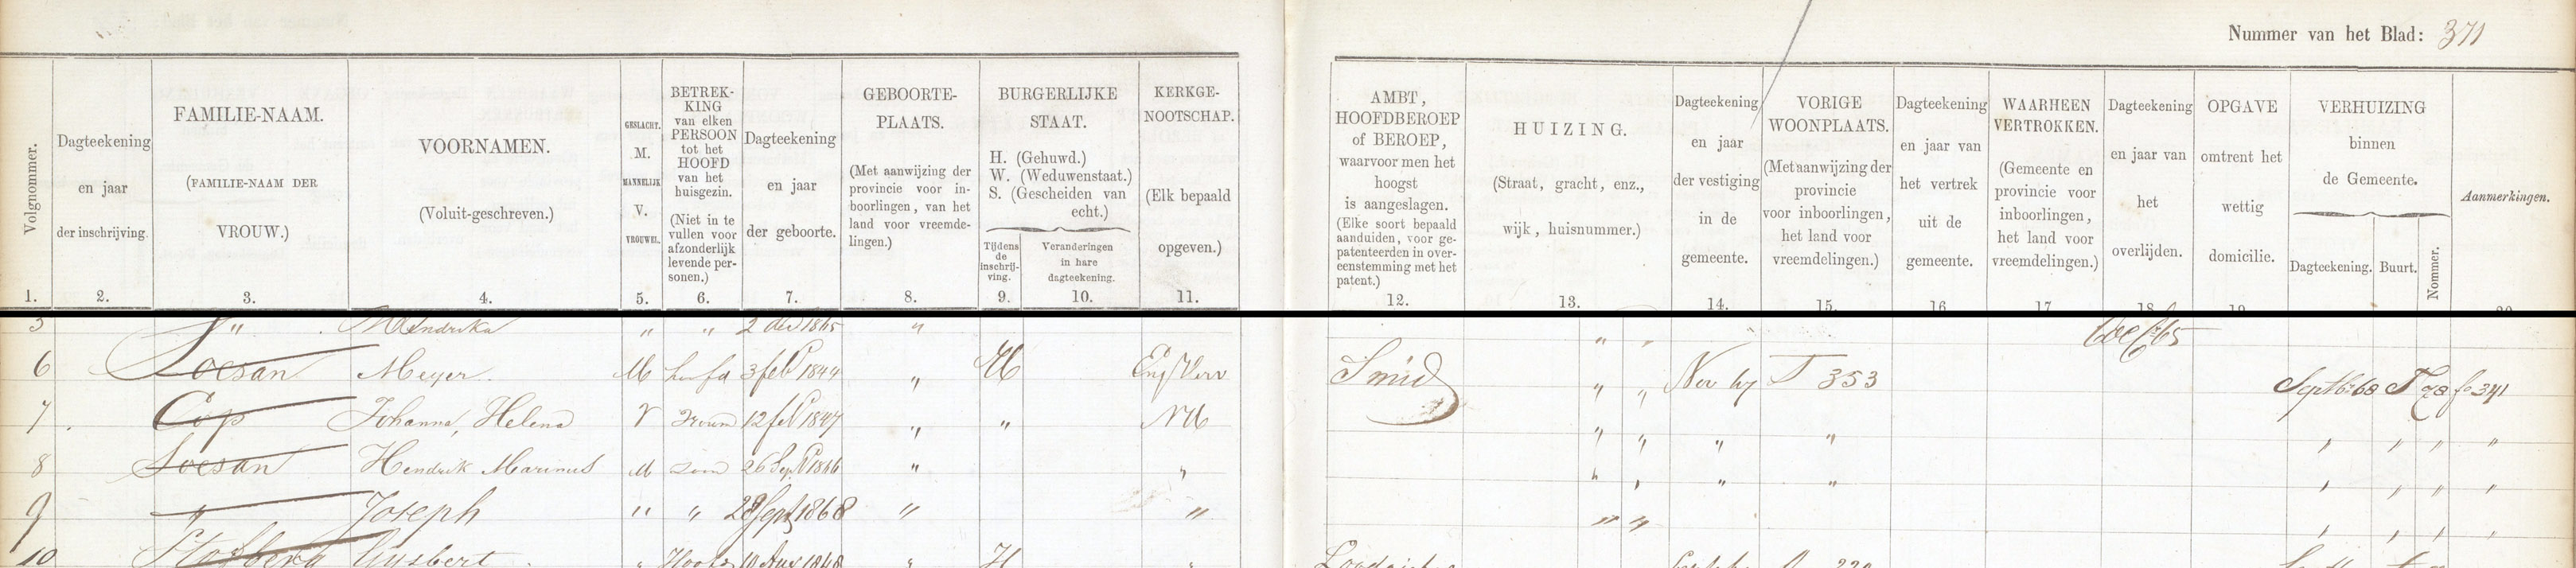 Nummer van het Blad: 371
Volgnommer. 1.
Dagteekening en jaar der inschrijving. 2.
FAMILIE-NAAM. (FAMILIE-NAAM DER VROUW.) 3.
VOORNAMEN. (Voluit-geschreven.) 4.
GESLACHT. M. MANNELIJK V. VROUWEL. 5.
BETREK-KING van elken PERSOON tot het HOOFD van het huisgezin. (Niet in te vullen voor afzonderlijk levende per-sonen.) 6.
Dagteekening en jaar der geboorte. 7.
GEBOORTE-PLAATS. (Met aanwijzing der provincie voor in-boorlingen, van het land voor vreemde-lingen.) 8.
BURGERLIJKE STAAT. H. (Gehuwd.) W. (Weduwenstaat.) S. (Gescheiden van echt.)
Tijdens de inschrij-ving. 9.
Veranderingen in hare dagteekening. 10.
KERKGE-NOOTSCHAP. (Elk bepaald opgeven.) 11.
AMBT, HOOFDBEROEP of BEROEP, waarvoor men het hoogst is aangeslagen. (Elke soort bepaald aanduiden, voor ge-patenteerden in over-eenstemming met het patent.) 12.
HUIZING. (Straat, gracht, enz., wijk, huisnummer.) 13.
Dagteekening en jaar der vestiging in de gemeente. 14.
VORIGE WOONPLAATS. (Met aanwijzing der provincie voor inboorlingen, het land voor vreemdelingen.) 15.
Dagteekening en jaar van het vertrek uit de gemeente. 16
WAARHEEN VERTROKKEN. (Gemeente en provincie voor inboorlingen, het land voor vreemdelingen.) 17
Dagteekening en jaar van het overlijden. 18
OPGAVE omtrent het wettig domicilie. 19
VERHUIZING binnen de Gemeente.
Dagteekening. Buurt. Nommer.
Aanmerkingen. 20
5 " Hendrika " " 2 dec 1865 " " " " Dec 65
6 Soesan Meyer. M hoofd 3 feb 1844 " H Smid " " Nov 67 T 353 Sept 68 T
7 Cop Johanna, Helena V Vrouw 12 feb 1847 " " NH " " " " " " " "
8 Soesan Hendrik Marinus M Zoon 26 Sept 1866 " " " " " " " " " "
9 " Joseph " " 28 Sept 1868 " " " " " " " "
10 Gijsbert Hoofd 1848 " H "